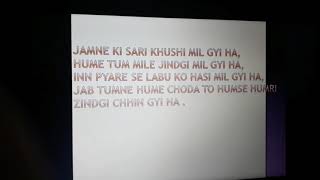 JAMNE KI SARI KHUSHI MIL GYI HA,
HUME TUM MILE JINDGI MIL GYI HA,
INN PYARE SE LABU KO HASI MIL GYI HA,
JAB TUMNE HUME CHODA TO HUMSE HUMRI
ZINDGI CHHIN GYI HA .